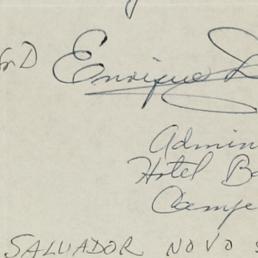 Enrique
Admin
Hotel Ba
Campe
SALVADOR NOVO